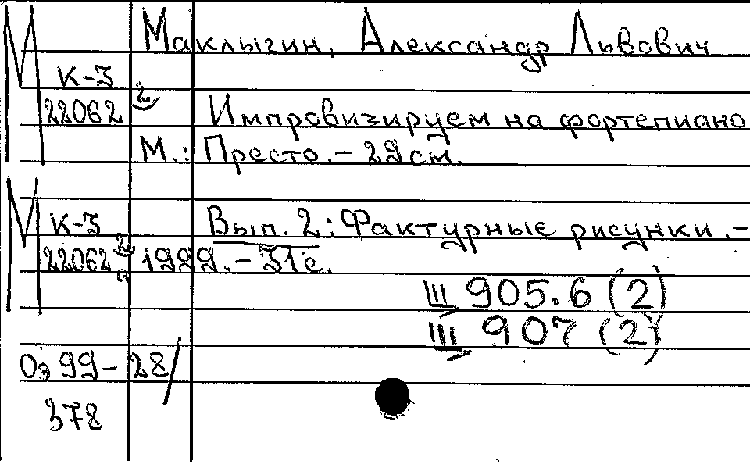 М Маклыгин, Александр Львович
К-3
22062 2 Импровизируем на фортепиано
М.: Престо. - 29 см.
М К-3 Вып. 2: Фактурные рисунки. -
22062 1999. - 31 с.
III 905.6 (2)
III 907 (2)
Оз 99-28/
378